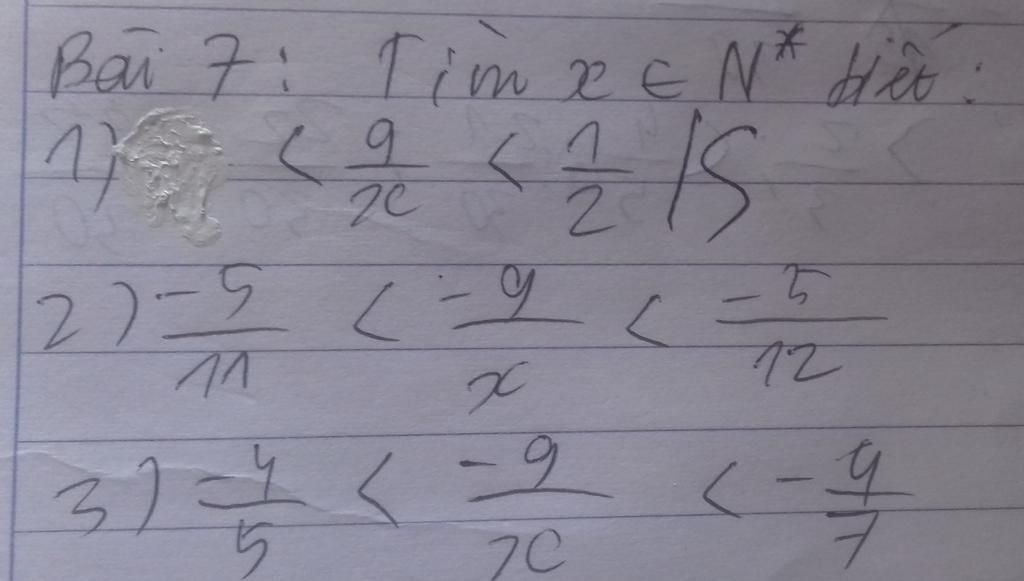 Bài 7: Tìm x ∈ N* biết:
1) < 9/x < 1/2 /S
2) -5/11 < -9/x < -5/12
3) -4/5 < -9/x < -4/7